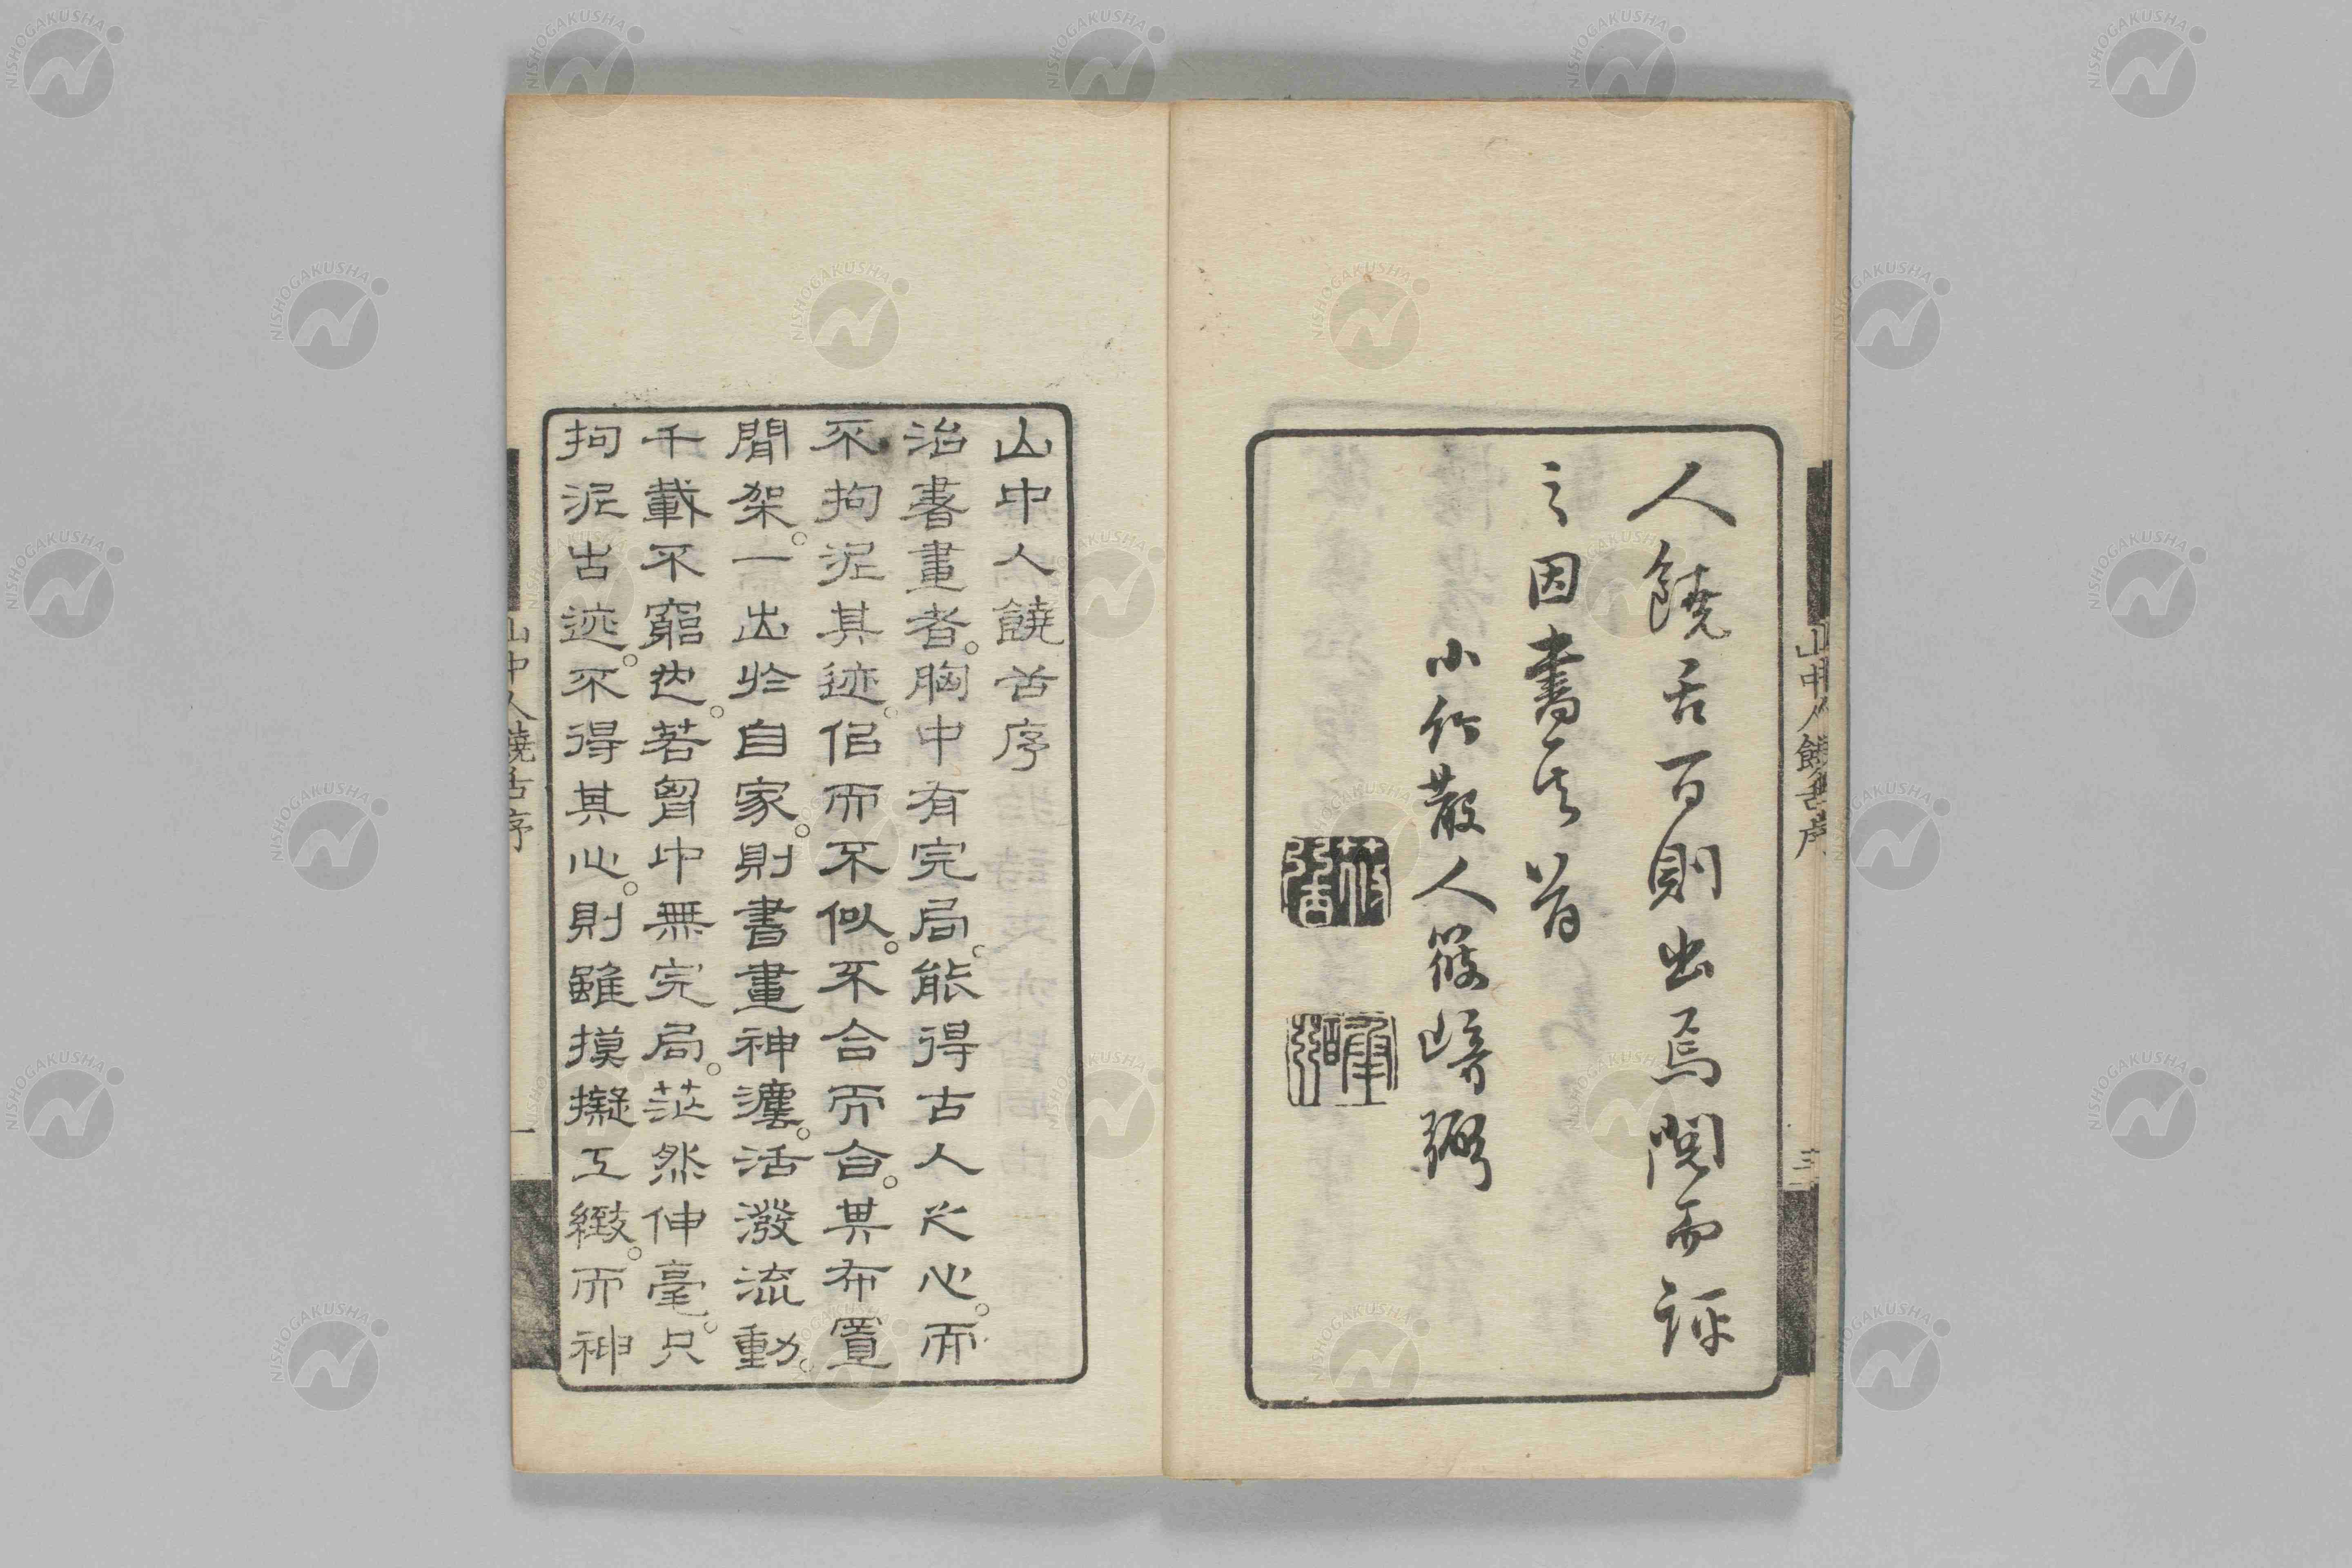 人饒舌百則出焉閲而評
之因書其首
小竹散人篠崎弼
山中人饒舌序
三
山中人饒舌序
治書畫者。胸中有完局。能得古人之心。而
不拘泥其迹。侣而不似。不合而合。其布置
間架。一出於自家。則書畫神瀍。活潑流動。
千載不窮也。若胷中無完局。茫然伸毫。只
拘泥古迹。不得其心。則雖摸擬工緻。而神
山中人饒舌序
一
NISHOGAKUSHA